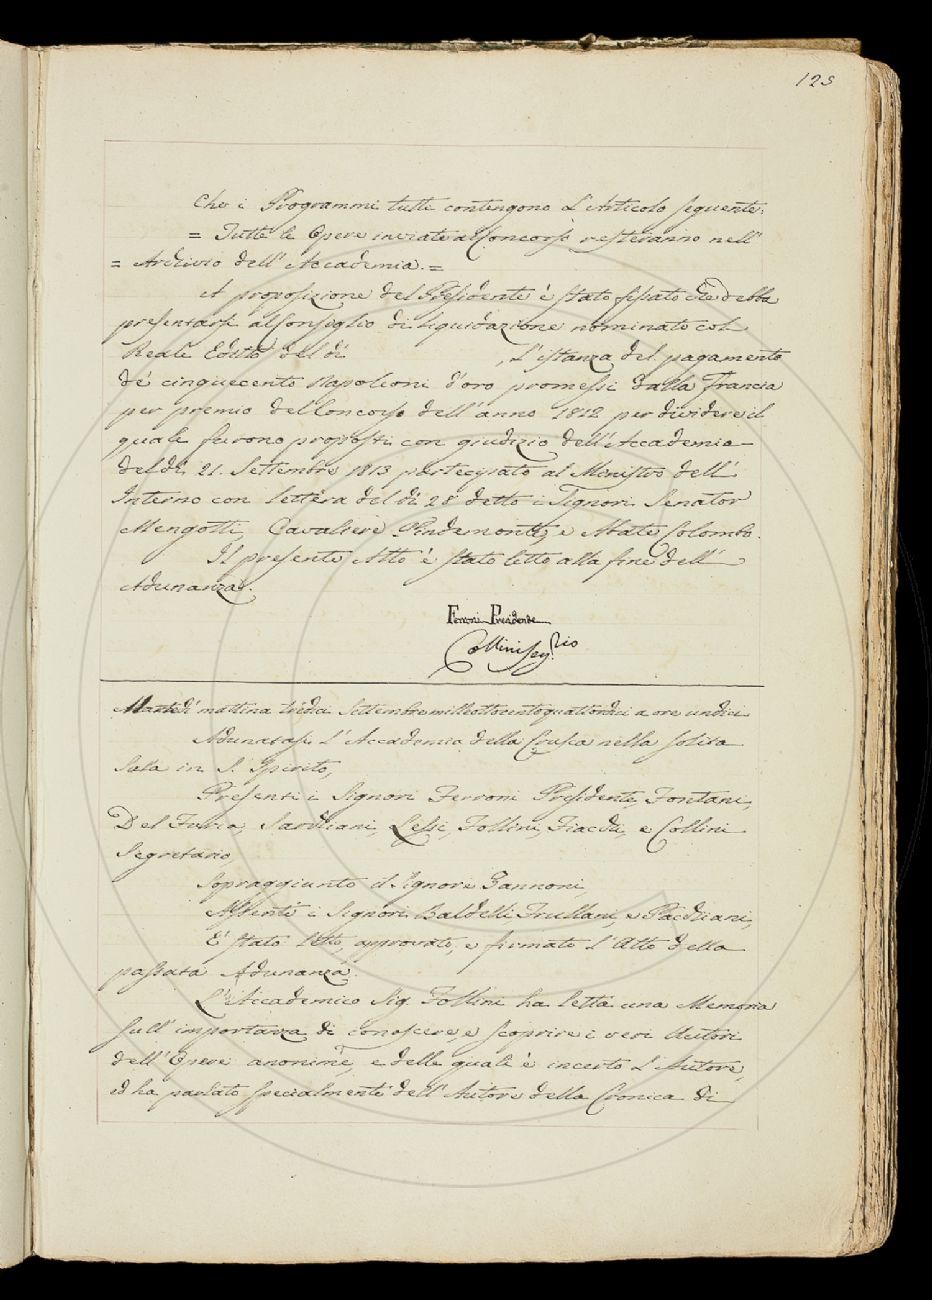 125
che i Programmi tutti contengono l'Articolo seguente:
= Tutte le Opere inviate al Concorso resteranno nell'
= Archivio dell'Accademia. =
A proposizione del Presidente è stato fissato che debba
presentarsi al Consiglio di liquidazione nominato col
Reale Editto del dì , l'istanza del pagamento
de' cinquecento Napoleoni d'oro promessi dalla Francia
per premio del Concorso dell'anno 1812 per dividere il
quale furono proposti con giudizio dell'Accademia
del dì 21. Settembre 1813 partecipato al Ministro dell'
Interno con lettera del dì 28 detto i Signori Senator
Mengotti, Cavaliere Pindemonte, e Abate Colombo.
Il presente Atto è stato letto alla fine dell'
Adunanza.
Ferroni Presidente
Collini Seg.rio
Martedì mattina tredici Settembre milleottocentoquattordici a ore undici
Adunatasi l'Accademia della Crusca nella solita
Sala in S. Spirito,
Presenti i Signori Ferroni Presidente, Fontani,
Del Furia, Sarchiani, Lessi, Follini, Fiacchi, e Collini
Segretario,
Sopraggiunto il Signore Zannoni,
Assenti i Signori Baldelli, Frullani, e Pacchiani,
È stato letto, approvato, e firmato l'Atto della
passata Adunanza.
L'Accademico Sig. Follini ha letta una Memoria
sull'importanza di conoscere, e scoprire i veri Autori
dell'Opere anonime, e delle quali è incerto l'Autore,
ed ha parlato specialmente dell'Autore della Cronica di